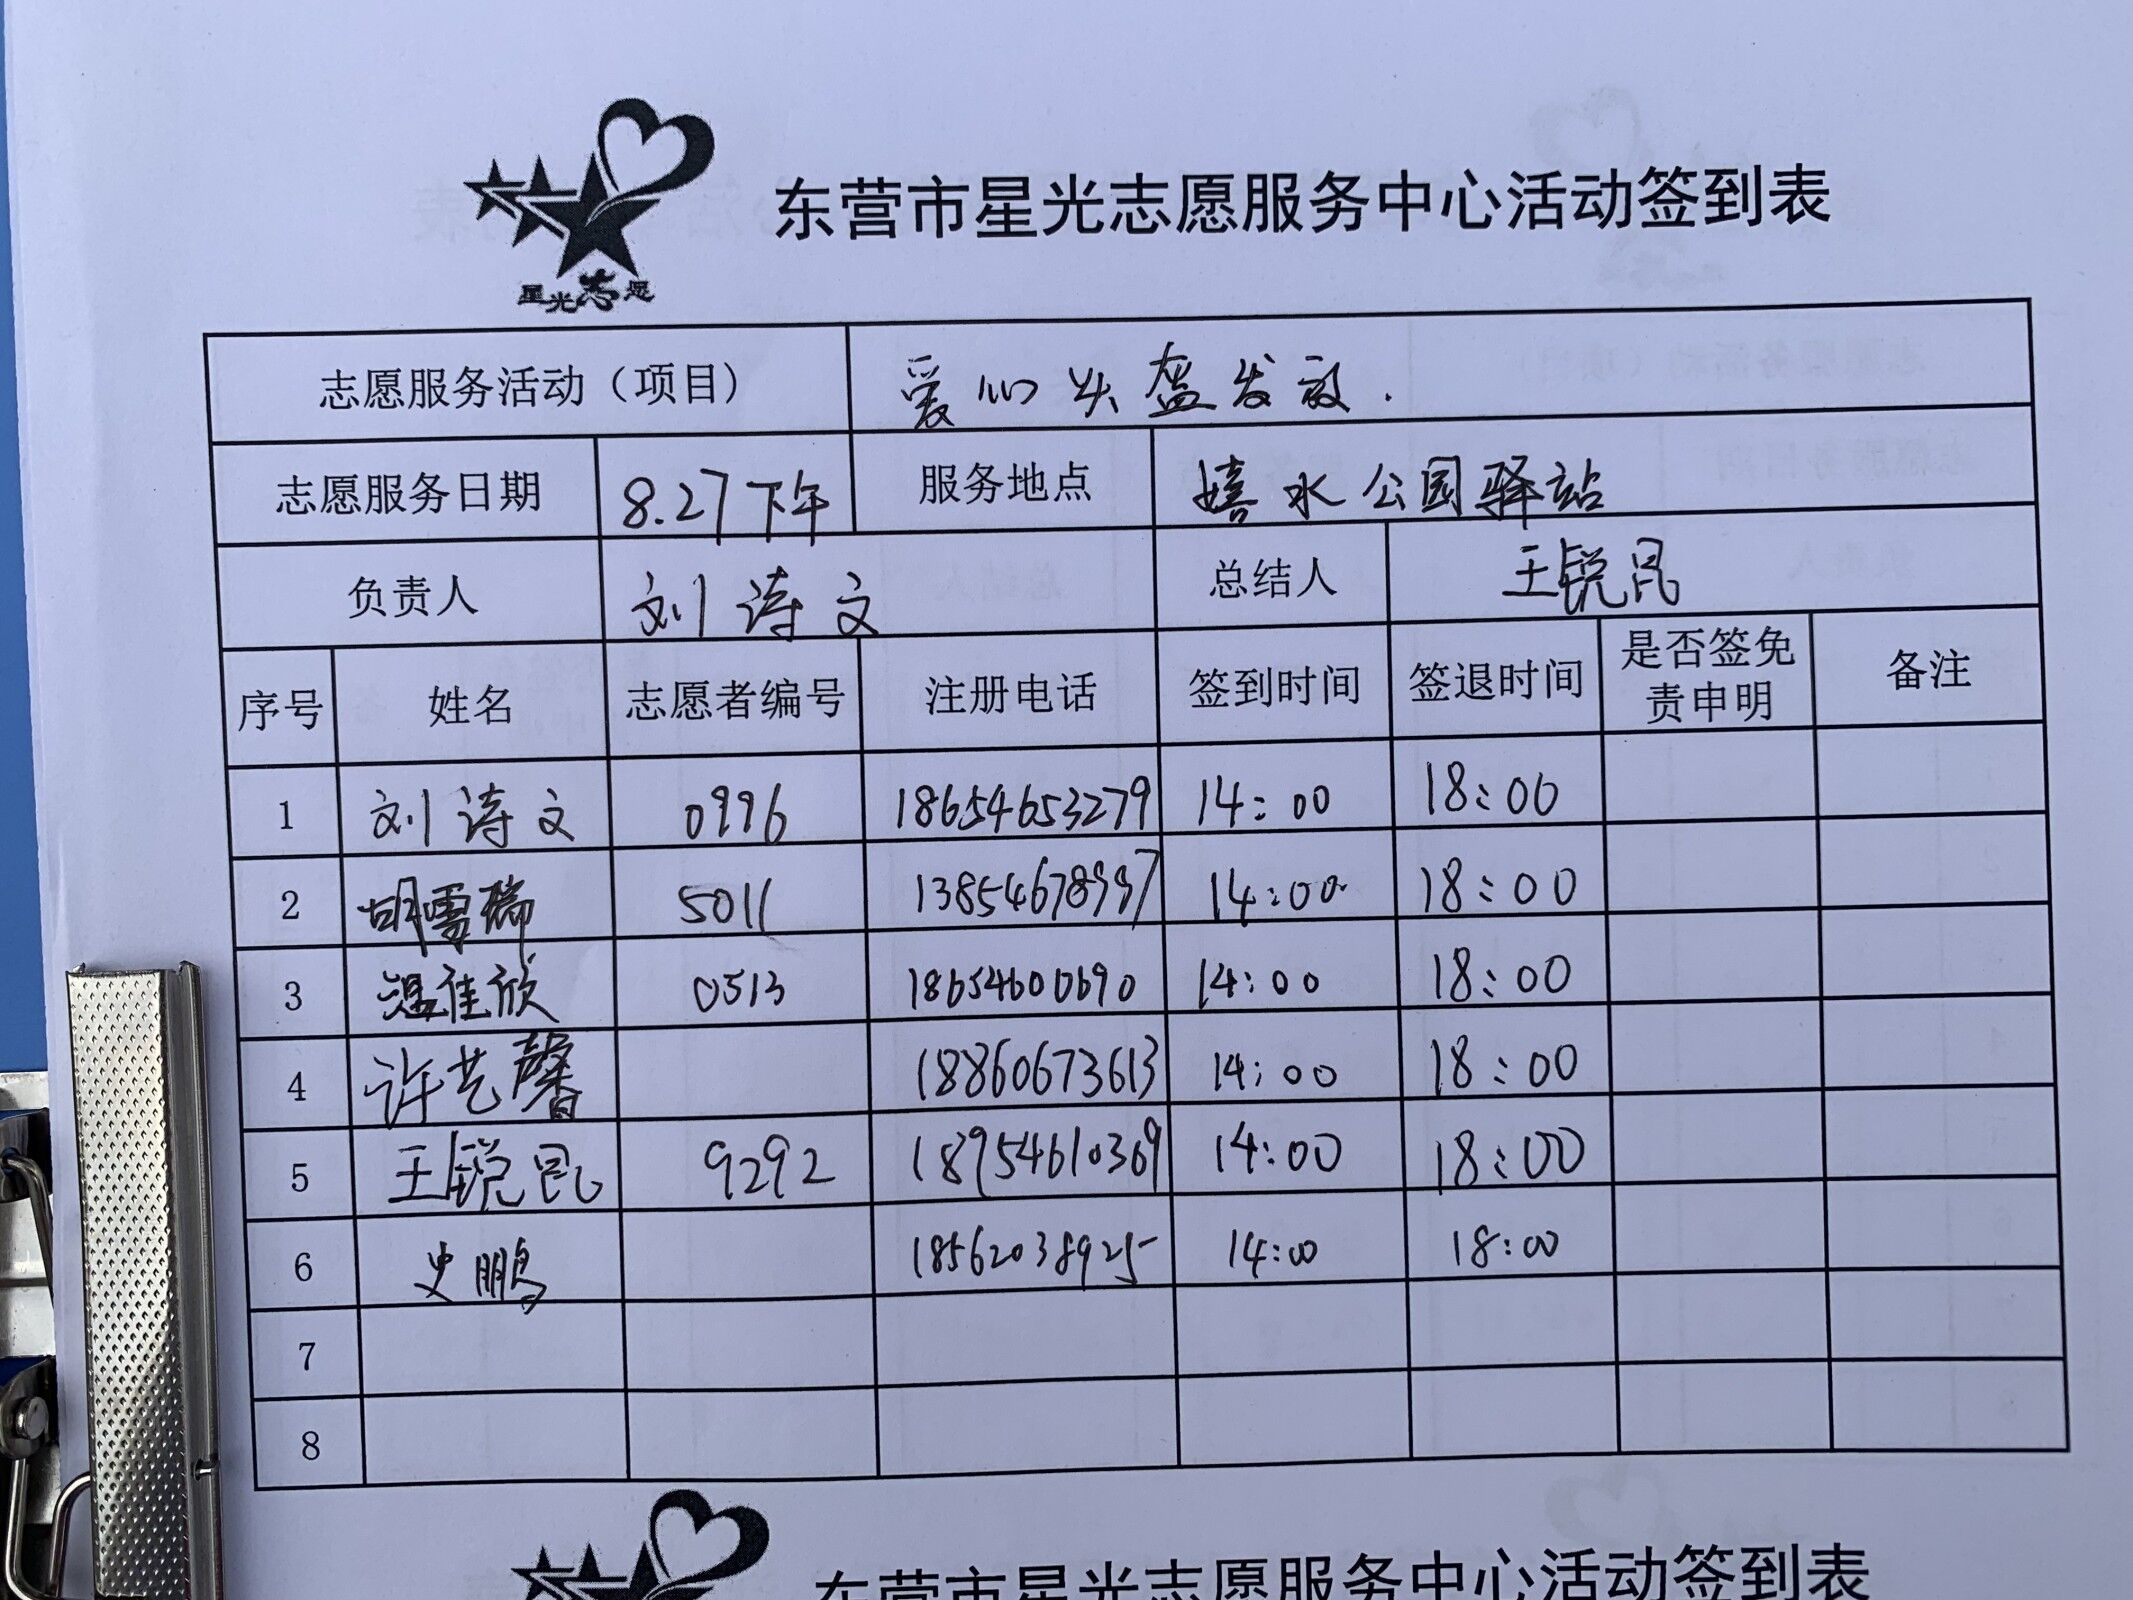 星光志愿
东营市星光志愿服务中心活动签到表
志愿服务活动（项目） 爱心头盔发放.
志愿服务日期 8.27下午 服务地点 嬉水公园驿站
负责人 刘诗文 总结人 王锐昆
序号 姓名 志愿者编号 注册电话 签到时间 签退时间 是否签免责申明 备注
1 刘诗文 0996 18654653279 14:00 18:00
2 胡雪瑞 5011 13854678997 14:00 18:00
3 温佳欣 0513 18654600690 14:00 18:00
4 许艺馨 18860673613 14:00 18:00
5 王锐昆 9292 18954610369 14:00 18:00
6 史鹏 18562038925 14:00 18:00
7
8
东营市星光志愿服务中心活动签到表